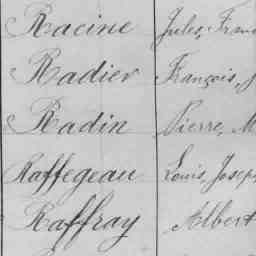 Racine Jules, Fran
Radier François, J
Radin Pierre, M
Raffegeau Louis, Joseph
Raffray Albert